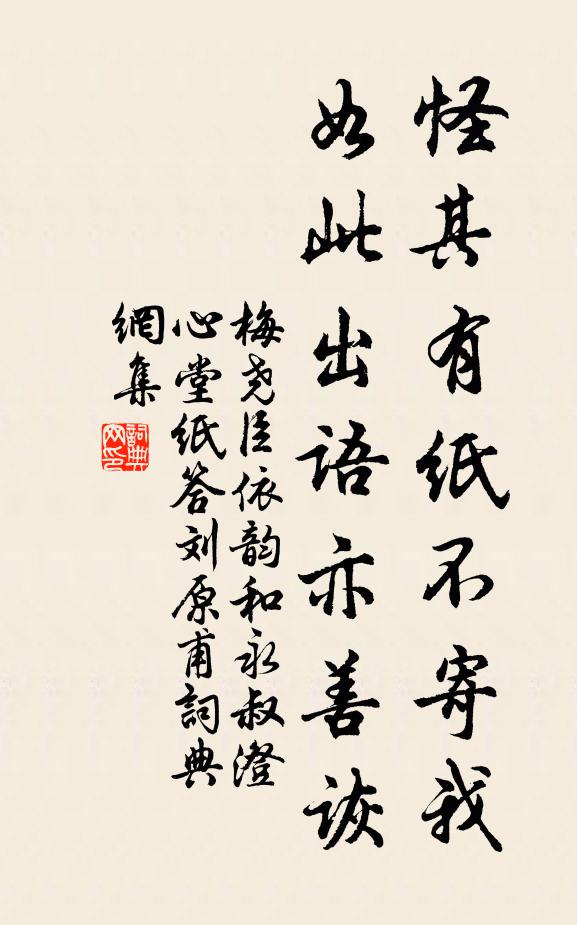 怪其有纸不寄我
如此出语亦善诙
梅尧臣依韵和永叔澄
心堂纸答刘原甫詞典
網集
詞典
网印